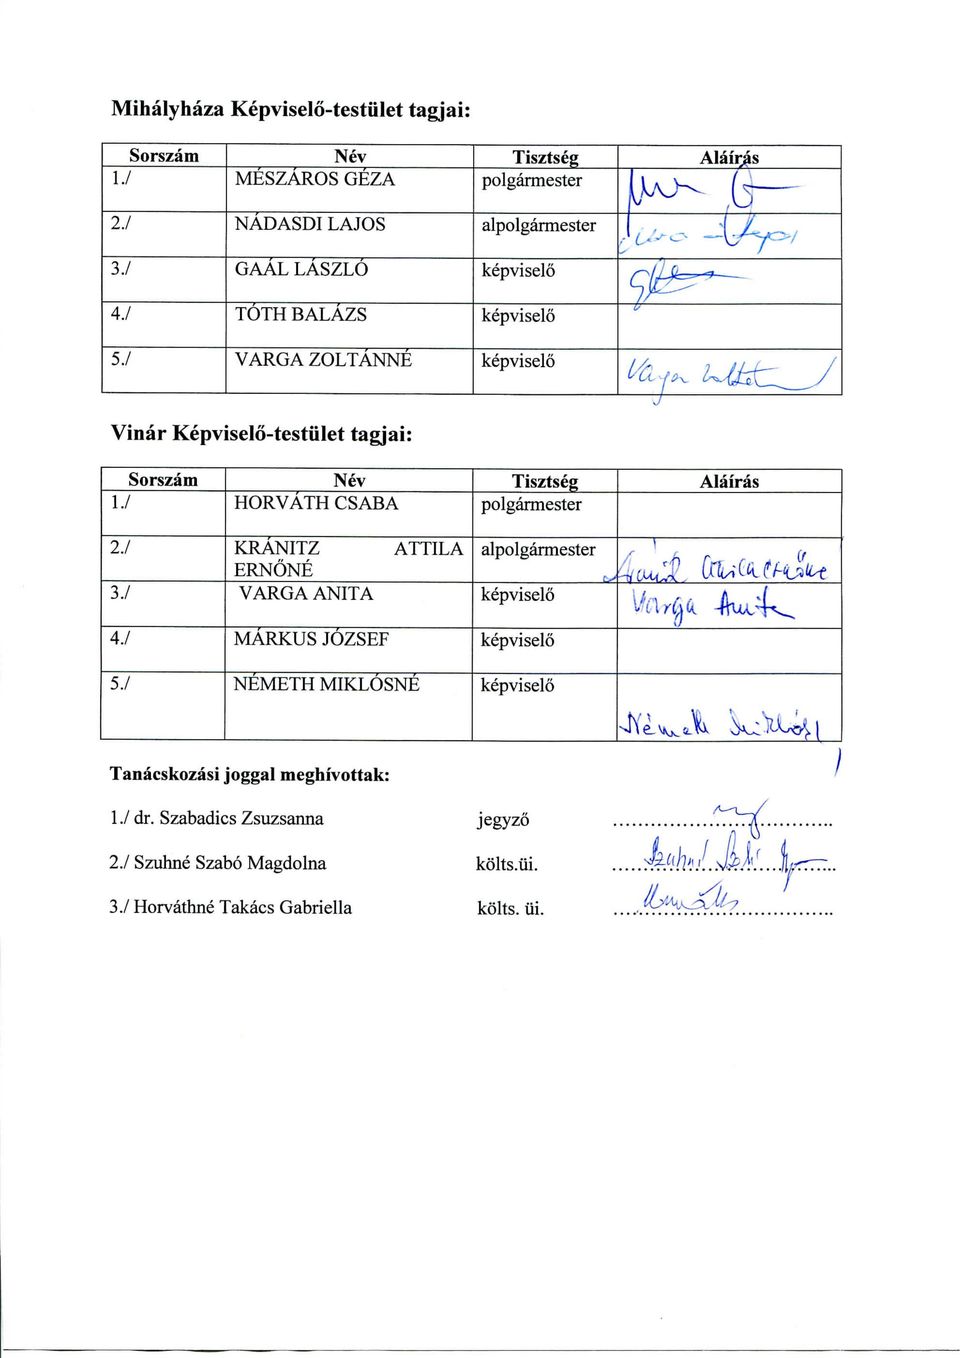 Mihályháza Képviselő-testület tagjai:
Sorszám Név Tisztség Aláírás
1./ MÉSZÁROS GÉZA polgármester
2./ NÁDASDI LAJOS alpolgármester
3./ GAÁL LÁSZLÓ képviselő
4./ TÓTH BALÁZS képviselő
5./ VARGA ZOLTÁNNÉ képviselő Varga
Vinár Képviselő-testület tagjai:
Sorszám Név Tisztség Aláírás
1./ HORVÁTH CSABA polgármester
2./ KRÁNITZ ATTILA alpolgármester
ERNŐNÉ
3./ VARGA ANITA képviselő Varga Anita
4./ MÁRKUS JÓZSEF képviselő
5./ NÉMETH MIKLÓSNÉ képviselő
Németh Miklós
Tanácskozási joggal meghívottak:
1./ dr. Szabadics Zsuzsanna jegyző
2./ Szuhné Szabó Magdolna költs.üi. Szuhné
3./ Horváthné Takács Gabriella költs. üi.